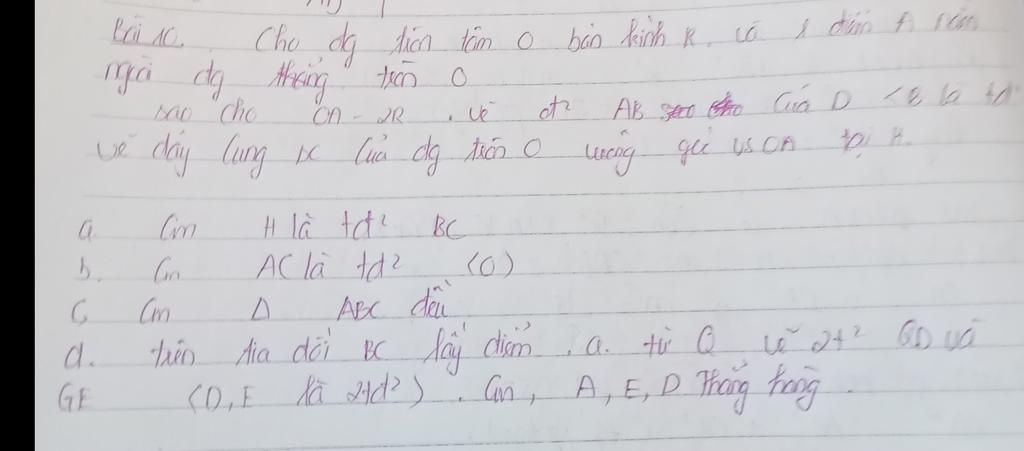 Bài 10. Cho đg tiên tâm O bán kính R. có 1 điểm A nằm
ngoài đg thẳng tròn O
sao cho OA = 2R . vẽ đt² AB của D <B là tđ
vẽ dây cung BC của đg tròn O vuông góc vs OA tại H.
a. Cm H là tđ² BC
b. Cm AC là td² (O)
c, Cm Δ ABC đều
d. trên tia đối BC lấy điểm . Q. từ Q vẽ 2t² QD và
GE (D, E là 2td²) . Cm, A, E, D Thẳng hàng.